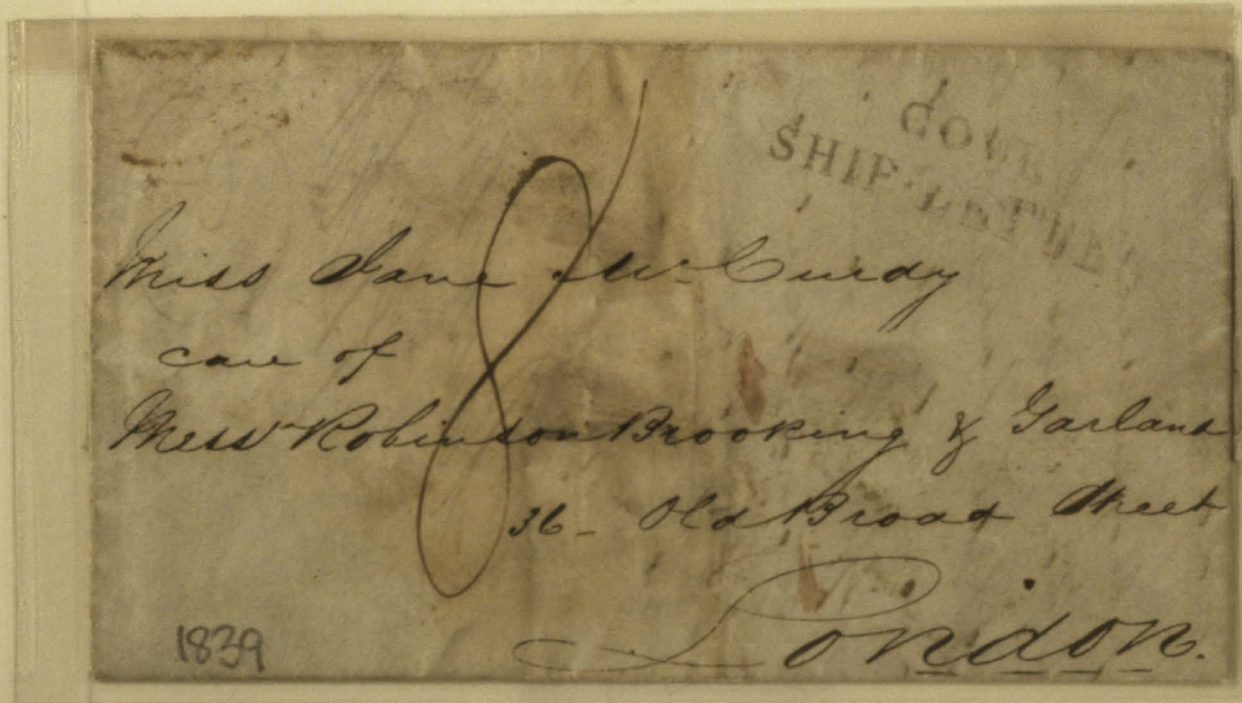 SHIP LETTER
8
Miss Jane McCurdy
care of
Messrs Robinson Brooking & Garland
36 - Old Broad Street
London.
1839